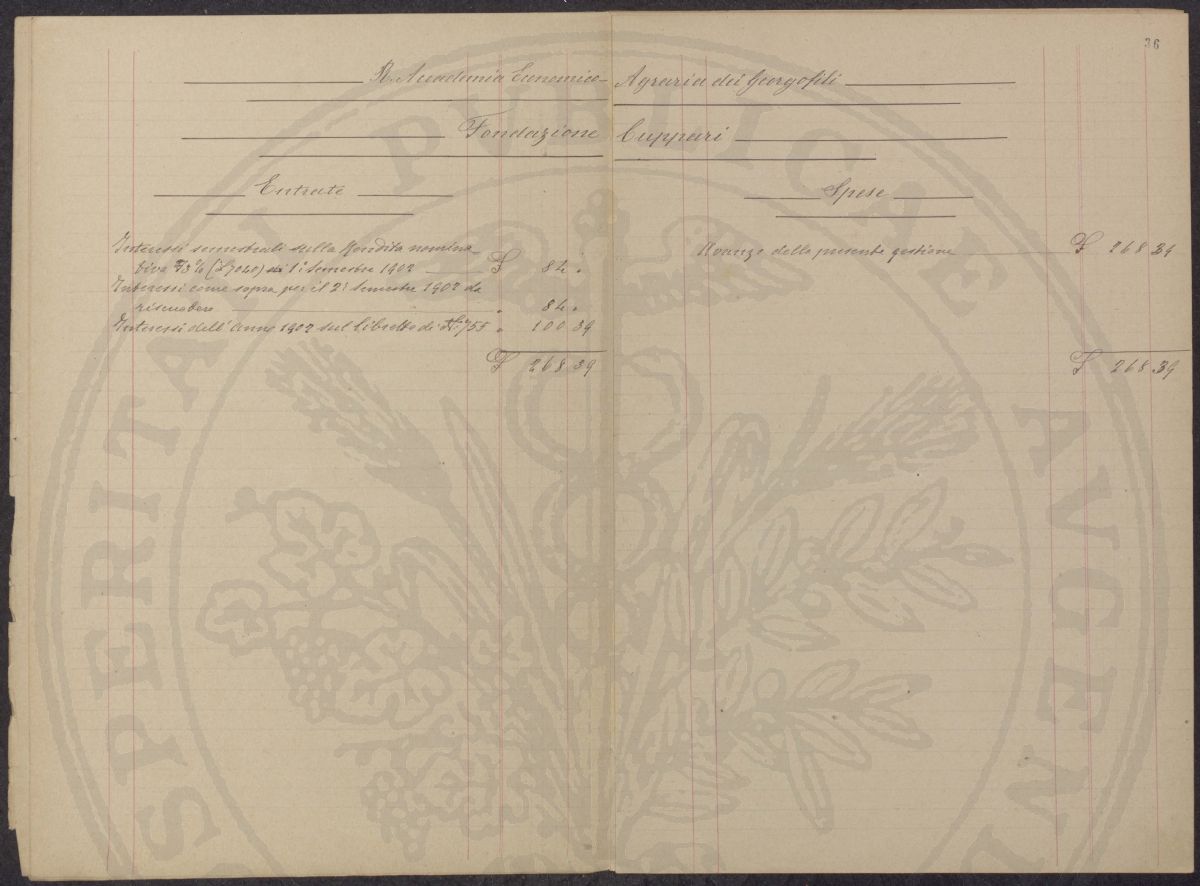 36
R. Accademia Economico-Agraria dei Georgofili
Fondazione Cuppari
Entrate
Interessi semestrali sulla Rendita nomina-
tiva 3% (£ 7040) 1º Semestre 1902 £ 84 "
Interessi come sopra per il 2º Semestre 1902 da
riscuotere " 84 "
Interessi dell'Anno 1902 sul Libretto di Nº 755 " 100 39
£ 268 39
Spese
Avanzo della presente gestione £ 268 39
£ 268 39
SPERITATI PVBLICAE AVGEND